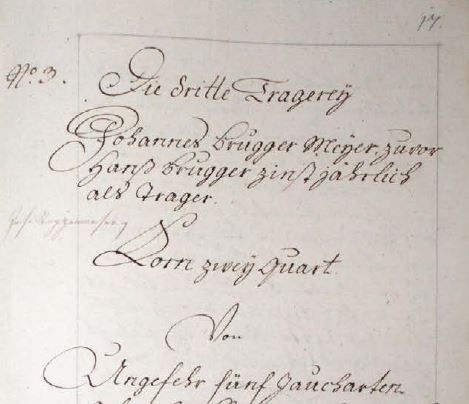 17.
No. 3.
Die dritte Tragerey
Johannes Brugger Meyer, zuvor
Hanß Brugger zinst jährlich
als Trager.
Korn zwey Quart
Von
Ungefehr fünf Jaucharten